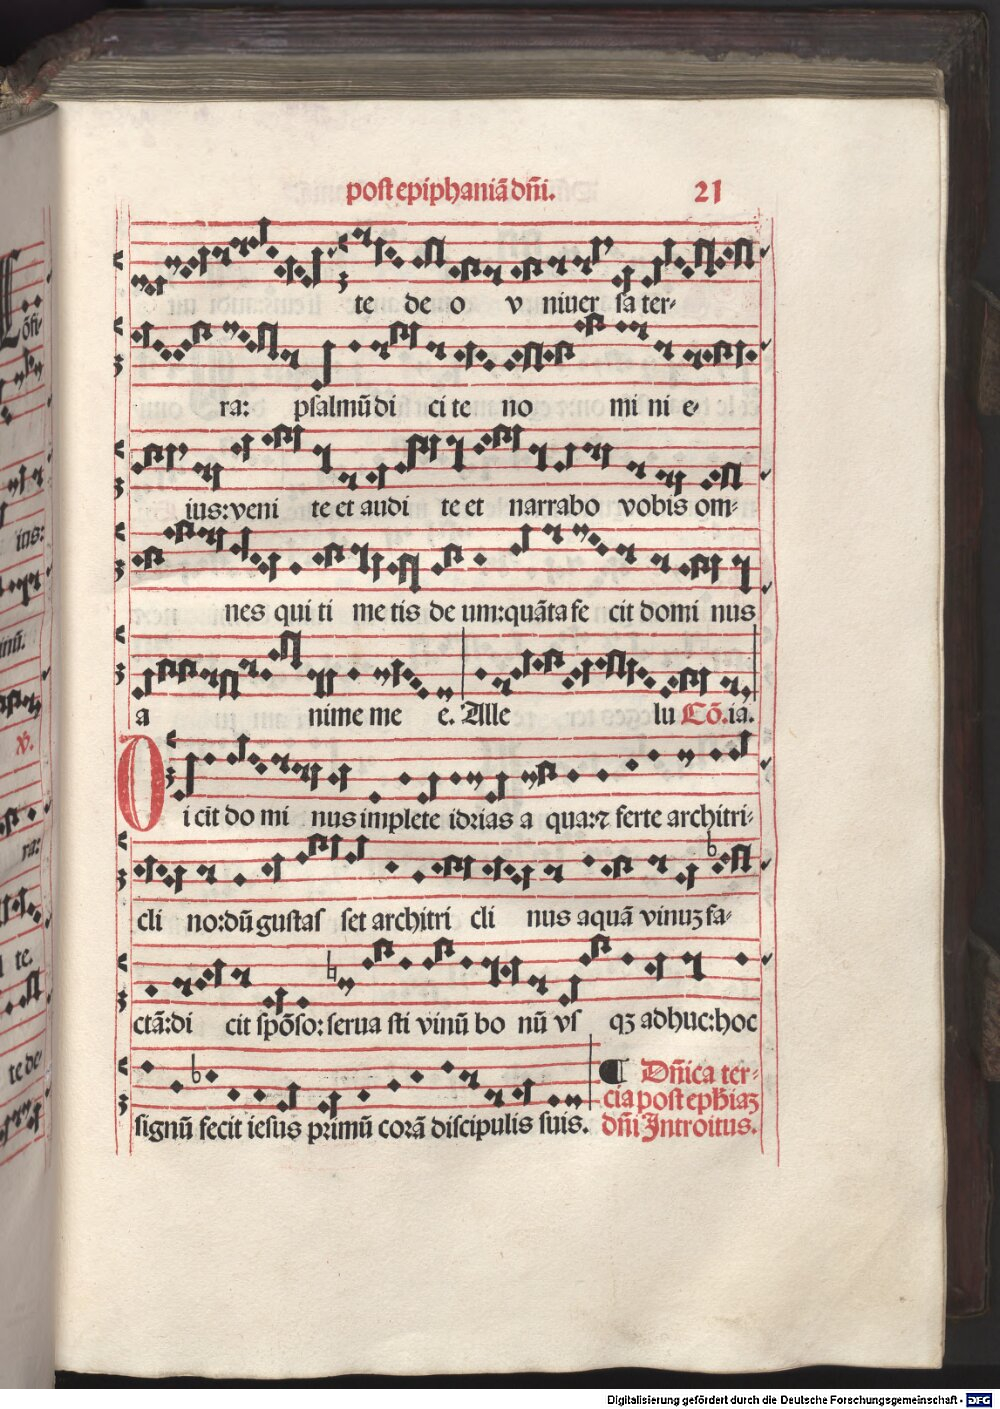 post epiphaniā dn̄i. 21
te de o v niuer sa ter-
ra: psalmū di ci te no mi ni e-
ius: veni te et audi te et narrabo vobis om-
nes qui ti me tis de um: quāta fe cit domi nus
a nime me e. Alle lu Cō. ia.
Dicit do mi nus implete idrias a qua: ⁊ ferte architri-
cli no: dū gustas set architri cli nus aquā vinuꝫ fa-
ctā: di cit spōso: serua sti vinū bo nū vs qꝫ adhuc: hoc
signū fecit iesus primū corā discipulis suis.
¶ Dn̄ica ter-
cia post eph̄iaꝫ
dn̄i Introitus.
ius:
ra:
te.
te de
Digitalisierung gefördert durch die Deutsche Forschungsgemeinschaft - DFG